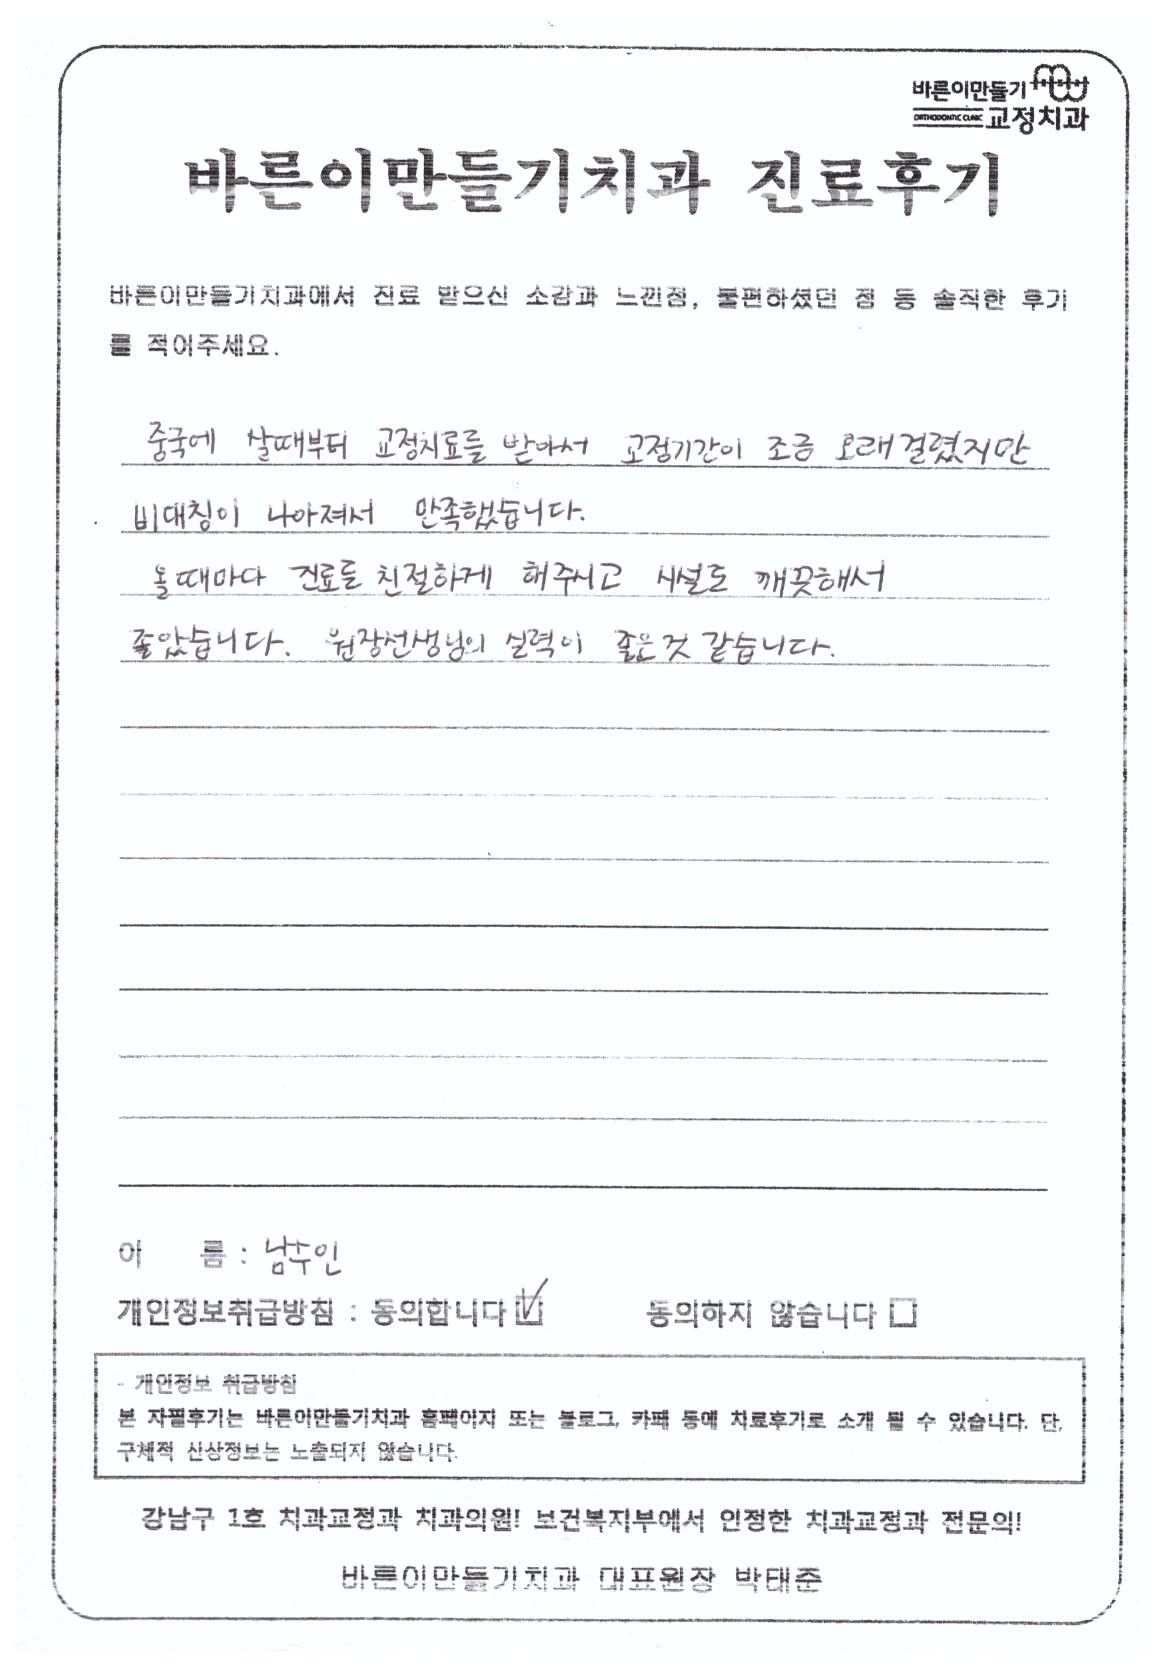 바른이만들기
ORTHODONTIC CLINIC 교정치과
바른이만들기치과 진료후기
바른이만들기치과에서 진료 받으신 소감과 느낀점, 불편하셨던 점 등 솔직한 후기
를 적어주세요.
중국에 살때부터 교정치료를 받아서 교정기간이 조금 오래걸렸지만
비대칭이 나아져서 만족했습니다.
올때마다 진료를 친절하게 해주시고 시설도 깨끗해서
좋았습니다. 원장선생님의 실력이 좋은것 같습니다.
이 름 : 남수인
개인정보취급방침 : 동의합니다 동의하지 않습니다
- 개인정보 취급방침
본 자필후기는 바른이만들기치과 홈페이지 또는 블로그, 카페 등에 치료후기로 소개 될 수 있습니다. 단,
구체적 신상정보는 노출되지 않습니다.
강남구 1호 치과교정과 치과의원! 보건복지부에서 인정한 치과교정과 전문의!
바른이만들기치과 대표원장 박태준